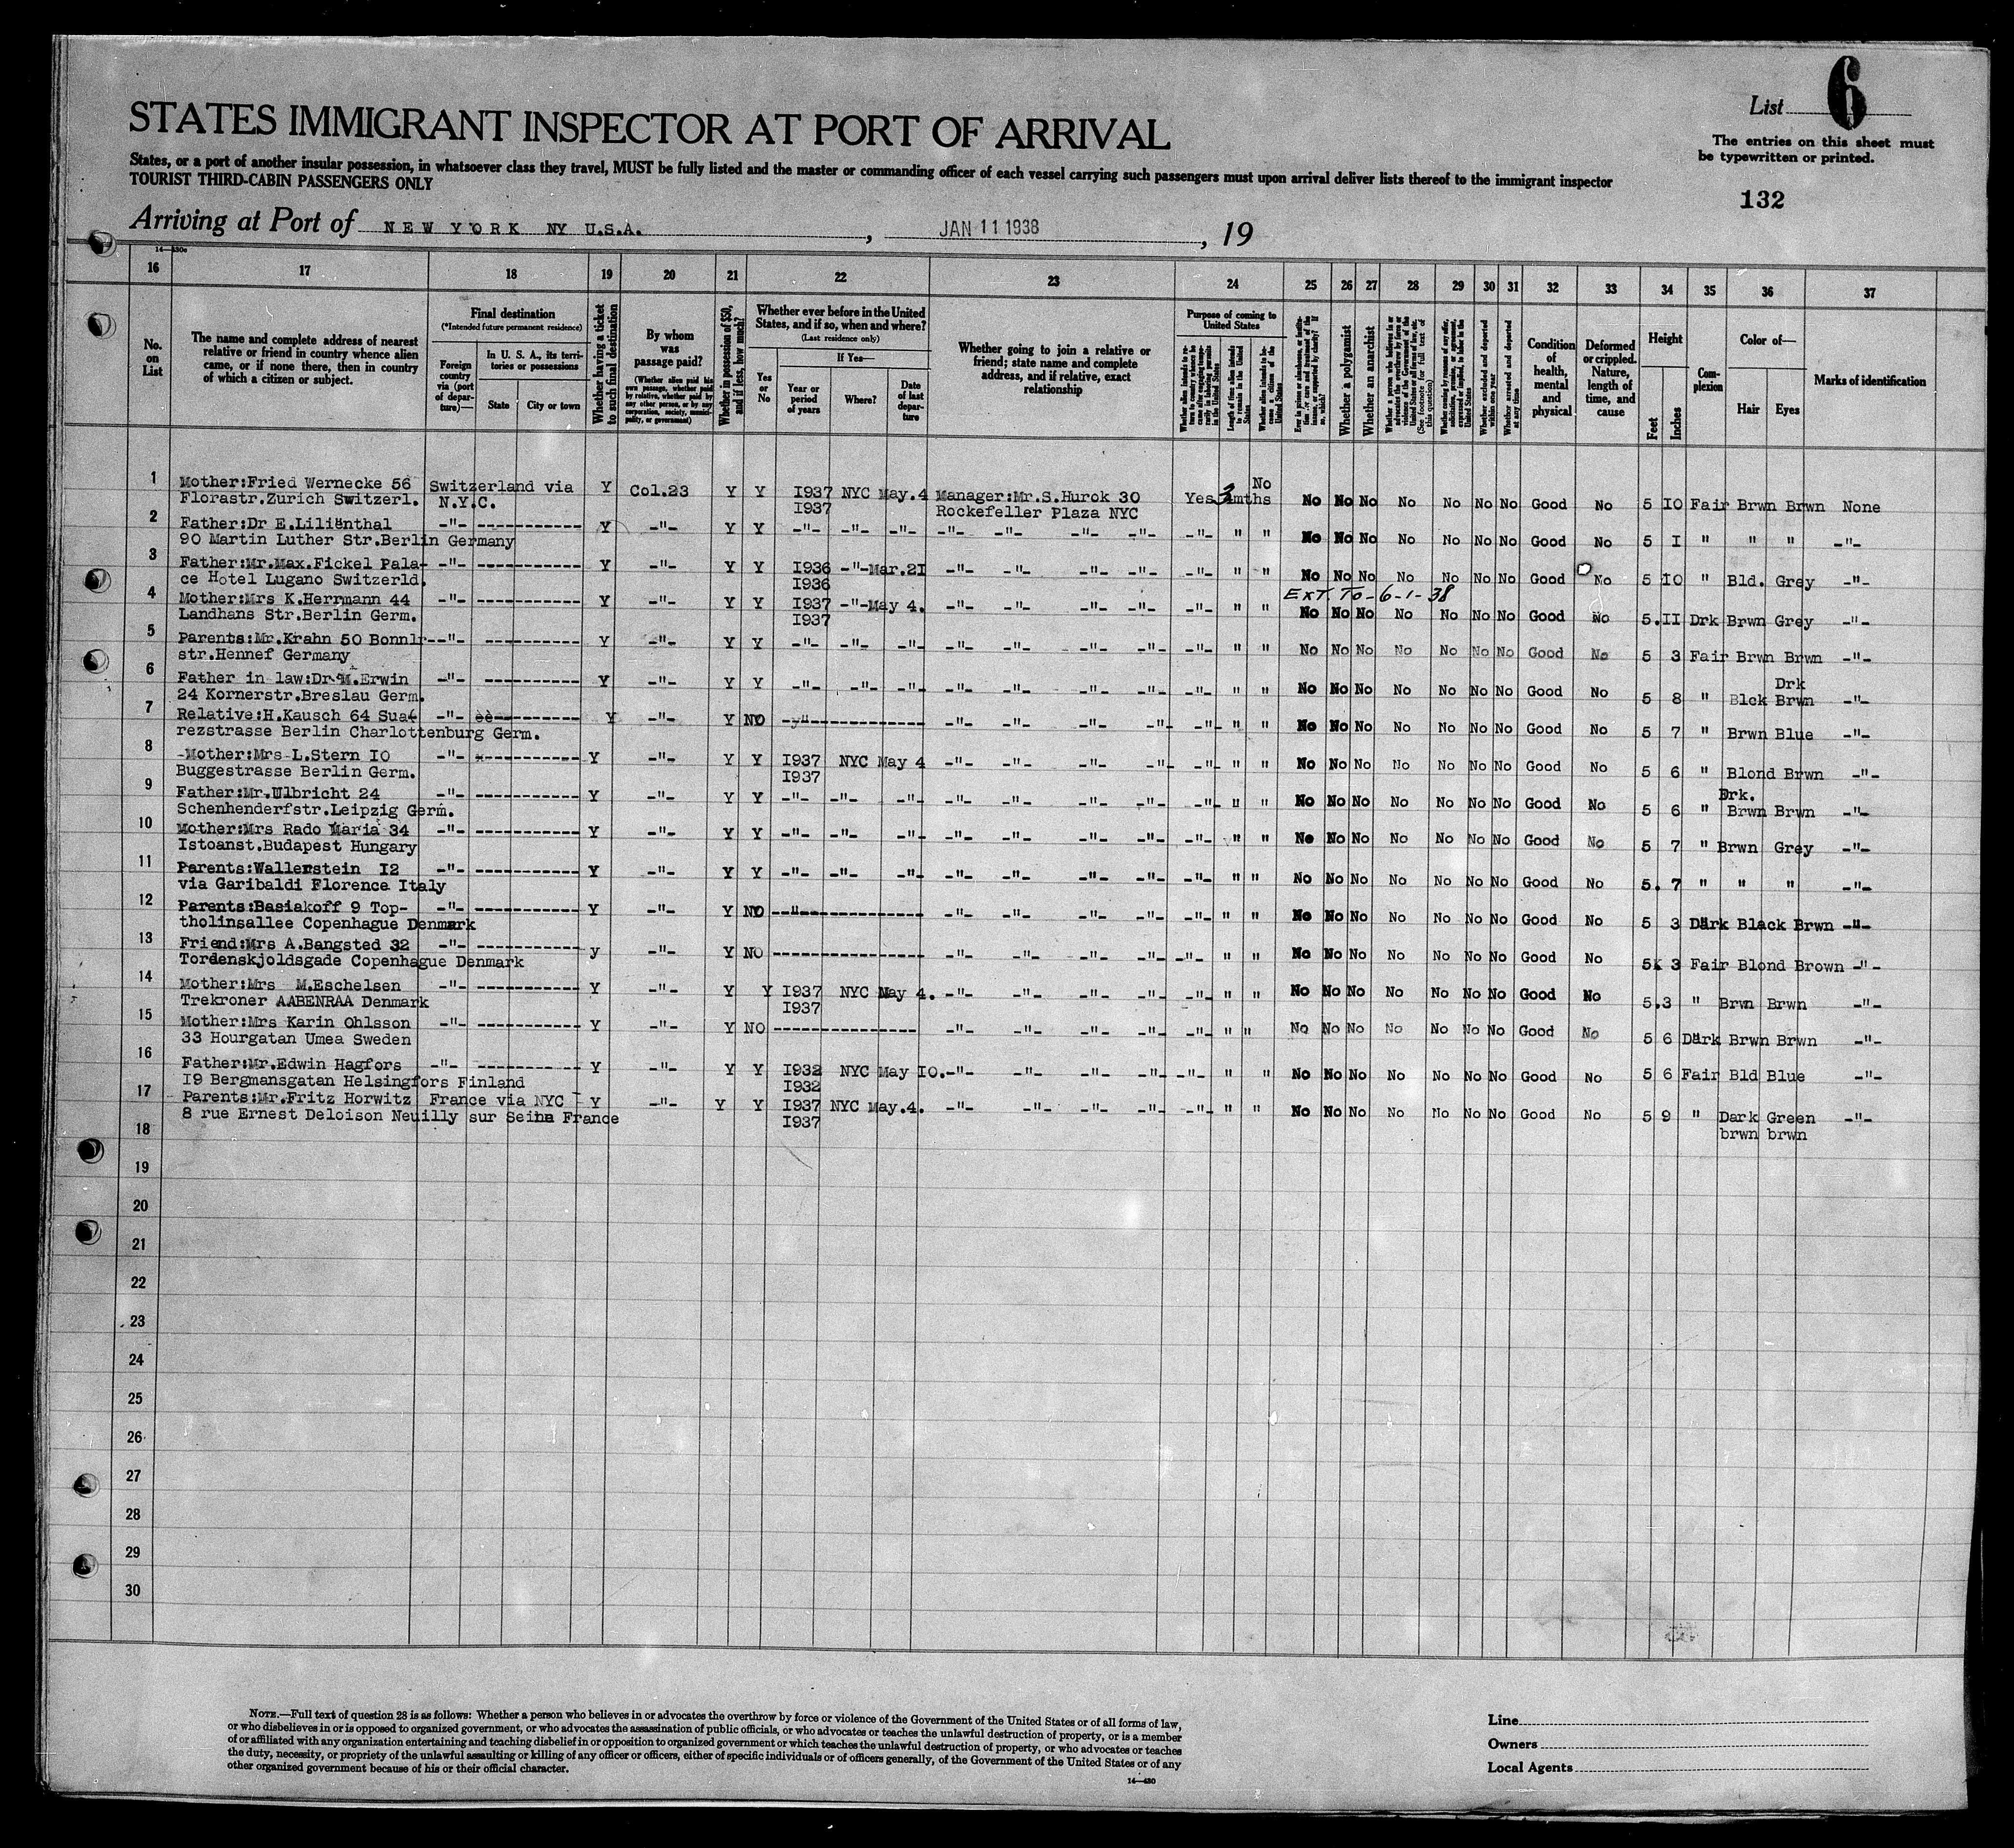 List 6
STATES IMMIGRANT INSPECTOR AT PORT OF ARRIVAL
The entries on this sheet must
be typewritten or printed.
States, or a port of another insular possession, in whatsoever class they travel, MUST be fully listed and the master or commanding officer of each vessel carrying such passengers must upon arrival deliver lists thereof to the immigrant inspector
TOURIST THIRD-CABIN PASSENGERS ONLY
132
Arriving at Port of NEW YORK NY U.S.A. , JAN 11 1938 , 19
16 17 18 19 20 21 22 23 24 25 26 27 28 29 30 31 32 33 34 35 36 37
No. on List
The name and complete address of nearest
relative or friend in country whence alien
came, or if none there, then in country
of which a citizen or subject.
Final destination
(*Intended future permanent residence)
Foreign country via (port of departure)—
In U. S. A., its territories or possessions
State
City or town
Whether having a ticket to such final destination
By whom was passage paid?
(Whether alien paid his own passage, whether paid by relative, whether paid by any other person, or by any corporation, society, municipality, or government)
Whether in possession of $50, and if less, how much?
Whether ever before in the United States, and if so, when and where?
(Last residence only)
Yes or No
If Yes—
Year or period of years
Where?
Date of last departure
Whether going to join a relative or
friend; state name and complete
address, and if relative, exact
relationship
Purpose of coming to United States
Whether a polygamist
Whether an anarchist
Condition of health, mental and physical
Deformed or crippled. Nature, length of time, and cause
Height
Feet
Inches
Complexion
Color of—
Hair
Eyes
Marks of identification
1 Mother:Fried Wernecke 56 Switzerland via Y Col.23 Y Y I937 NYC May.4 Manager:Mr.S.Hurok 30 Yes 3 mths No No No No No No No No Good No 5 I0 Fair Brwn Brwn None
Florastr.Zurich Switzerl. N.Y.C. I937 Rockefeller Plaza NYC
2 Father:Dr E.Lilienthal -"- ----------- Y -"- Y Y -"- -"- -"- -"- -"- -"- -"- -"- " " No No No No No No No Good No 5 I " " " -"-
90 Martin Luther Str.Berlin Germany
3 Father:Mr.Max.Fickel Pala- -"- ----------- Y -"- Y Y I936 -"- Mar.2I -"- -"- -"- -"- -"- " " No No No No No No No Good No 5 I0 " Bld. Grey -"-
ce Hotel Lugano Switzerld. I936
Ext. To - 6-1-38
4 Mother:Mrs K.Herrmann 44 -"- ----------- Y -"- Y Y I937 -"- May 4. -"- -"- -"- -"- -"- " " No No No No No No No Good No 5.II Drk Brwn Grey -"-
Landhans Str.Berlin Germ. I937
5 Parents:Mr.Krahn 50 Bonnlr -"- ----------- Y -"- Y Y -"- -"- -"- -"- -"- -"- -"- -"- " " No No No No No No No Good No 5 3 Fair Brwn Brwn -"-
str.Hennef Germany
6 Father in law:Dr M.Erwin -"- ----------- Y -"- Y Y -"- -"- -"- -"- -"- -"- -"- -"- " " No No No No No No No Good No 5 8 " Blck Drk Brwn -"-
24 Kornerstr.Breslau Germ.
7 Relative:H.Kausch 64 Sua -"- ----------- Y -"- Y NO -------------- -"- -"- -"- -"- -"- " " No No No No No No No Good No 5 7 " Brwn Blue -"-
rezstrasse Berlin Charlottenburg Germ.
8 Mother:Mrs L.Stern I0 -"- ----------- Y -"- Y Y I937 NYC May 4 -"- -"- -"- -"- -"- " " No No No No No No No Good No 5 6 " Blond Brwn -"-
Buggestrasse Berlin Germ. I937
9 Father:Mr.Ulbricht 24 -"- ----------- Y -"- Y Y -"- -"- -"- -"- -"- -"- -"- -"- " " No No No No No No No Good No 5 6 " Drk. Brwn Brwn -"-
Schenhenderfstr.Leipzig Germ.
10 Mother:Mrs Rado Maria 34 -"- ----------- Y -"- Y Y -"- -"- -"- -"- -"- -"- -"- -"- " " No No No No No No No Good No 5 7 " Brwn Grey -"-
Istoanst.Budapest Hungary
11 Parents:Wallerstein I2 -"- ----------- Y -"- Y Y -"- -"- -"- -"- -"- -"- -"- -"- " " No No No No No No No Good No 5. 7 " " " -"-
via Garibaldi Florence Italy
12 Parents:Basiakoff 9 Top- -"- ----------- Y -"- Y NO -------------- -"- -"- -"- -"- -"- " " No No No No No No No Good No 5 3 Dark Black Brwn -"-
tholinsallee Copenhague Denmark
13 Friend:Mrs A.Bangsted 32 -"- ----------- y -"- Y NO -------------- -"- -"- -"- -"- -"- " " No No No No No No No Good No 5 3 Fair Blond Brown -"-
Tordenskjoldsgade Copenhague Denmark
14 Mother:Mrs M.Eschelsen -"- ----------- Y -"- Y Y I937 NYC May 4. -"- -"- -"- -"- -"- " " No No No No No No No Good No 5.3 " Brwn Brwn -"-
Trekroner AABENRAA Denmark I937
15 Mother:Mrs Karin Ohlsson -"- ----------- Y -"- Y NO -------------- -"- -"- -"- -"- -"- " " No No No No No No No Good No 5 6 Dark Brwn Brwn -"-
33 Hourgatan Umea Sweden
16 Father:Mr.Edwin Hagfors -"- ----------- Y -"- Y Y I932 NYC May I0. -"- -"- -"- -"- -"- " " No No No No No No No Good No 5 6 Fair Bld Blue -"-
I9 Bergmansgatan Helsingfors Finland I932
17 Parents:Mr.Fritz Horwitz France via NYC - Y -"- Y Y I937 NYC May.4. -"- -"- -"- -"- -"- " " No No No No No No No Good No 5 9 " Dark Green -"-
8 rue Ernest Deloison Neuilly sur Seine France I937 brwn brwn
18
19
20
21
22
23
24
25
26
27
28
29
30
NOTE.—Full text of question 28 is as follows: Whether a person who believes in or advocates the overthrow by force or violence of the Government of the United States or of all forms of law,
or who disbelieves in or is opposed to organized government, or who advocates the assassination of public officials, or who advocates or teaches the unlawful destruction of property, or is a member
of or affiliated with any organization entertaining and teaching disbelief in or opposition to organized government or which teaches the unlawful destruction of property, or who advocates or teaches
the duty, necessity, or propriety of the unlawful assaulting or killing of any officer or officers, either of specific individuals or of officers generally, of the Government of the United States or of any
other organized government because of his or their official character.
14—430
Line
Owners
Local Agents